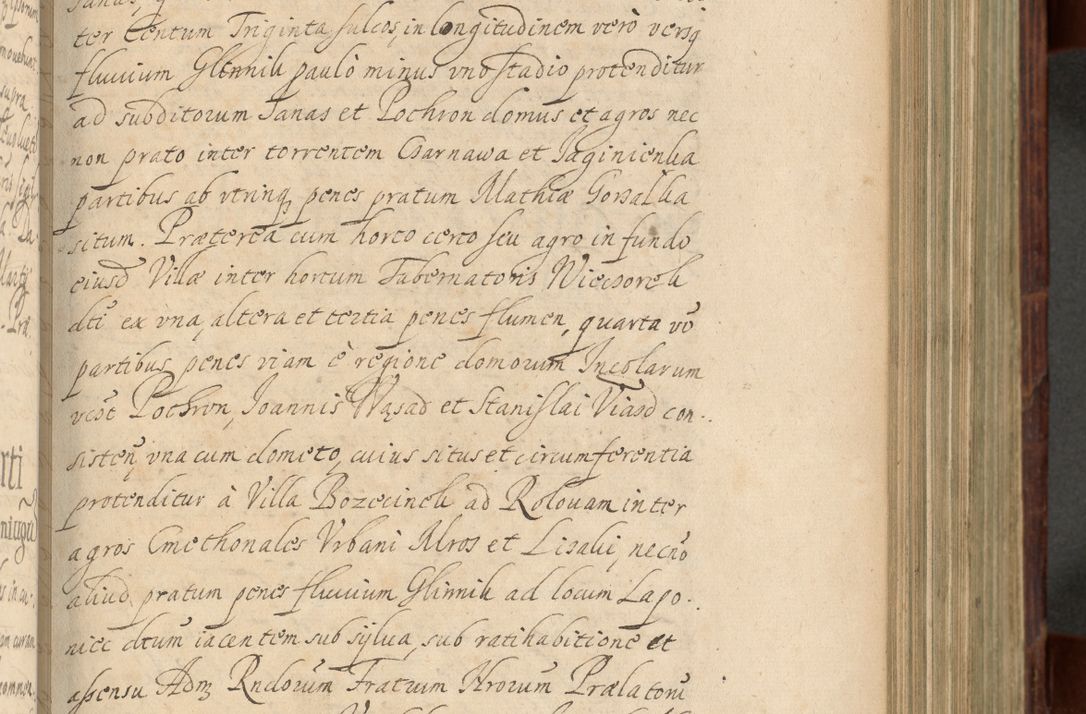 ter Centum Triginta sulcos, in longitudinem verò versq
fluuium Glinnik paulò minus vno stadio protenditur
ad subditorum Janas et Pochron domus et agros nec
non prato inter torrentem Czarnawa et Jaginienka
partibus ab vtrinq penes pratum Mathiæ Gorzalka
situm. Præterea cum horto certo seu agro in fundo
eiusd Villæ inter hortum Tabernatoris Wieczorek
dti ex vna, altera et tertia penes flumen, quarta vo
partibus penes viam è regione domorum Incolarum
vcōt Pochron, Joannis Wąsad et Stanislai Viazd con
sisten vna cum dometo, cuius situs et circumferentia
protenditur à Villa Bozecinek ad Rokouam inter
agros Cmethonales Vrbani Mros et Lisaki, necno
aliud pratum penes fluuium Glinnik ad locum Lapo
niec dtum iacentem sub sylua, sub ratihabitione et
assensu Adm Rndorum Fratrum Nrorum Prælatoru